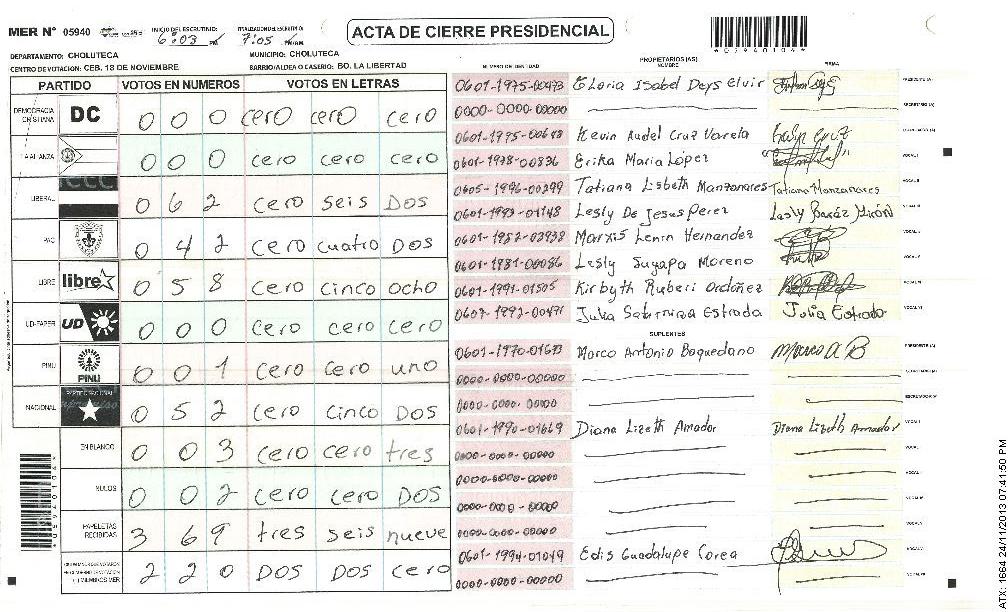 MER N° 05940 INICIO DEL ESCRUTINIO: 6:03 PM FINALIZACION DEL ESCRUTINIO: 7:05 PM/AM
ACTA DE CIERRE PRESIDENCIAL
*05940104*
DEPARTAMENTO: CHOLUTECA MUNICIPIO: CHOLUTECA
CENTRO DE VOTACION: CEB. 18 DE NOVIEMBRE. BARRIO/ALDEA O CASERIO: BO. LA LIBERTAD
PARTIDO VOTOS EN NUMEROS VOTOS EN LETRAS
DEMOCRACIA CRISTIANA DC 0 0 0 cero cero cero
LA ALIANZA 0 0 0 cero cero cero
LIBERAL 0 6 2 cero seis DOS
PAC 0 4 2 cero cuatro DOS
LIBRE libre 0 5 8 cero cinco ocho
UD-FAPER UD 0 0 0 cero cero cero
PINU PINU 0 0 1 cero cero uno
NACIONAL PARTIDO NACIONAL 0 5 2 cero cinco DOS
EN BLANCO 0 0 3 cero cero tres
NULOS 0 0 2 cero cero DOS
PAPELETAS RECIBIDAS 3 6 9 tres seis nueve
2 2 0 DOS DOS cero
NUMERO DE IDENTIDAD PROPIETARIOS (AS) NOMBRE FIRMA
0601-1975-00473 Gloria Isabel Deys elvir PRESIDENTE (A)
0000-0000-00000 SECRETARIO (A)
0601-1995-00648 Kevin Audel Cruz Varela ESCRUTADOR (A)
0601-1978-00836 Erika Maria López VOCAL I
0605-1996-00299 Tatiana Lisbeth Manzonares Tatiana Manzanares VOCAL II
0601-1993-01148 Lesly De Jesus Perez
0601-1982-03938 Marxis Lenin Hernandez
0601-1981-00086 Lesly Suyapa Moreno
0601-1991-01505 Kirbyth Ruberi Ordoñez
0607-1992-00471 Julia Saturnina Estrada Julia Estrada
SUPLENTES
0601-1970-01673 Marco Antonio Baquedano Marco A B PRESIDENTE (A)
0000-0000-00000 SECRETARIO (A)
0000-0000-00000 ESCRUTADOR (A)
0601-1990-01669 Diana Lizeth Amador Diana Lizeth Amador VOCAL I
0000-0000-00000
0000-0000-00000
0000-0000-00000
0000-0000-00000
0601-1994-01049 Edis Guadalupe Corea
0000-0000-00000
*05940104*
ATX: 1664 24/11/2013 07:41:50 PM